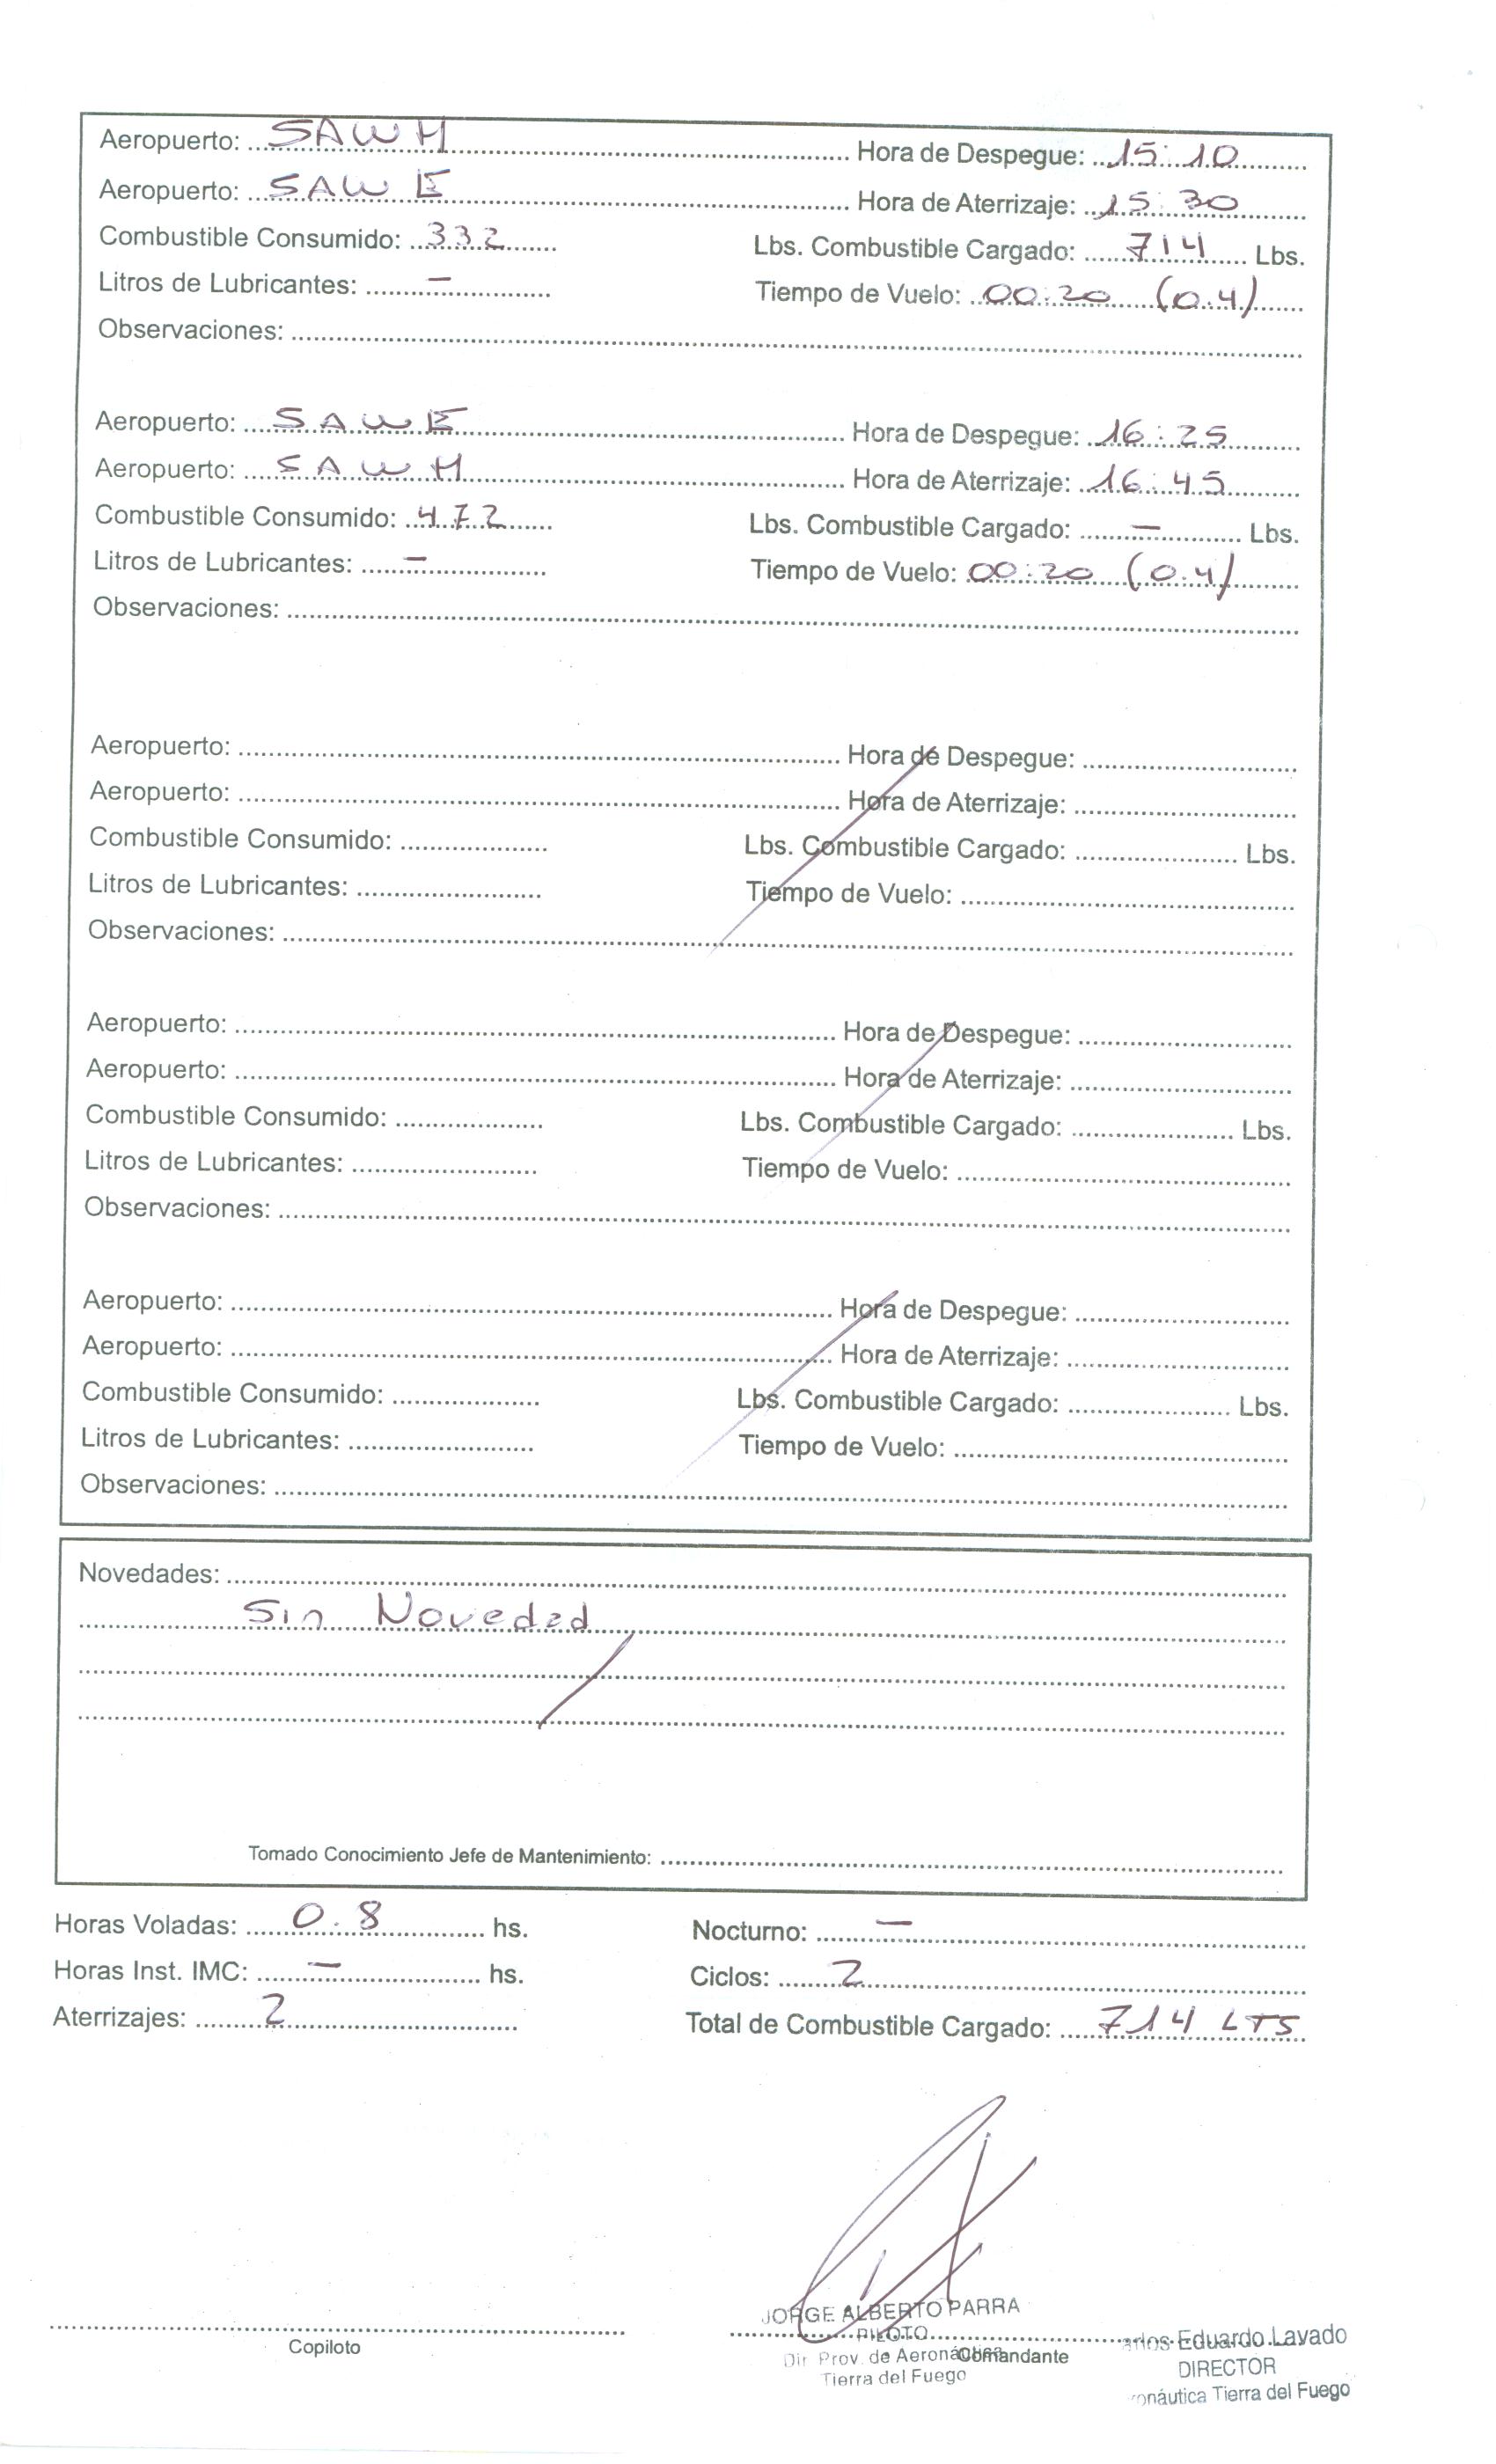 Aeropuerto: SAWH Hora de Despegue: 15:10
Aeropuerto: SAWE Hora de Aterrizaje: 15:30
Combustible Consumido: 332 Lbs. Combustible Cargado: 714 Lbs.
Litros de Lubricantes: - Tiempo de Vuelo: 00:20 (0.4)
Observaciones:
Aeropuerto: SAWE Hora de Despegue: 16:25
Aeropuerto: SAWH Hora de Aterrizaje: 16:45
Combustible Consumido: 472 Lbs. Combustible Cargado: - Lbs.
Litros de Lubricantes: - Tiempo de Vuelo: 00:20 (0.4)
Observaciones:
Aeropuerto: Hora de Despegue:
Aeropuerto: Hora de Aterrizaje:
Combustible Consumido: Lbs. Combustible Cargado: Lbs.
Litros de Lubricantes: Tiempo de Vuelo:
Observaciones:
Aeropuerto: Hora de Despegue:
Aeropuerto: Hora de Aterrizaje:
Combustible Consumido: Lbs. Combustible Cargado: Lbs.
Litros de Lubricantes: Tiempo de Vuelo:
Observaciones:
Aeropuerto: Hora de Despegue:
Aeropuerto: Hora de Aterrizaje:
Combustible Consumido: Lbs. Combustible Cargado: Lbs.
Litros de Lubricantes: Tiempo de Vuelo:
Observaciones:
Novedades:
Sin Novedad
Tomado Conocimiento Jefe de Mantenimiento:
Horas Voladas: 0.8 hs. Nocturno: -
Horas Inst. IMC: - hs. Ciclos: 2
Aterrizajes: 2 Total de Combustible Cargado: 714 LTS
JORGE ALBERTO PARRA
PILOTO
Dir. Prov. de Aeronáutica
Tierra del Fuego
Copiloto
Comandante
Eduardo Lavado
DIRECTOR
Tierra del Fuego